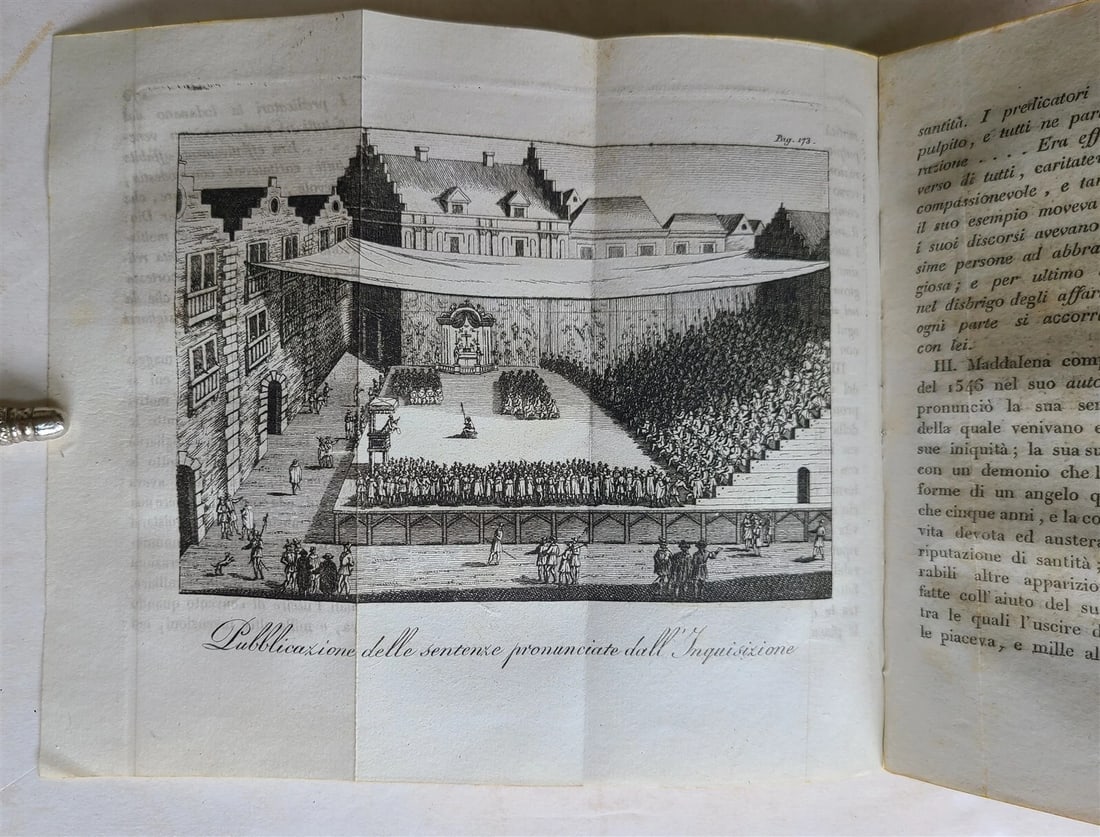 Pag. 173.
Pubblicazione delle sentenze pronunciate dall'Inquisizione
santità. I predicatori
pulpito, e tutti ne par
razione . . . . Era eff
verso di tutti, caritatev
compassionevole, e tan
il suo esempio moveva
i suoi discorsi avevano
sime persone ad abbra
giosa; e per ultimo
nel disbrigo degli affar
ogni parte si accorr
con lei.
III. Maddalena comp
del 1546 nel suo auto
pronunciò la sua sen
della quale venivano e
sue iniquità; la sua su
con un demonio che l
forme di un angelo q
che cinque anni, e la co
vita devota ed austera
riputazione di santità;
rabili altre apparizio
fatte coll'aiuto del su
tra le quali l'uscire d
le piaceva, e mille al